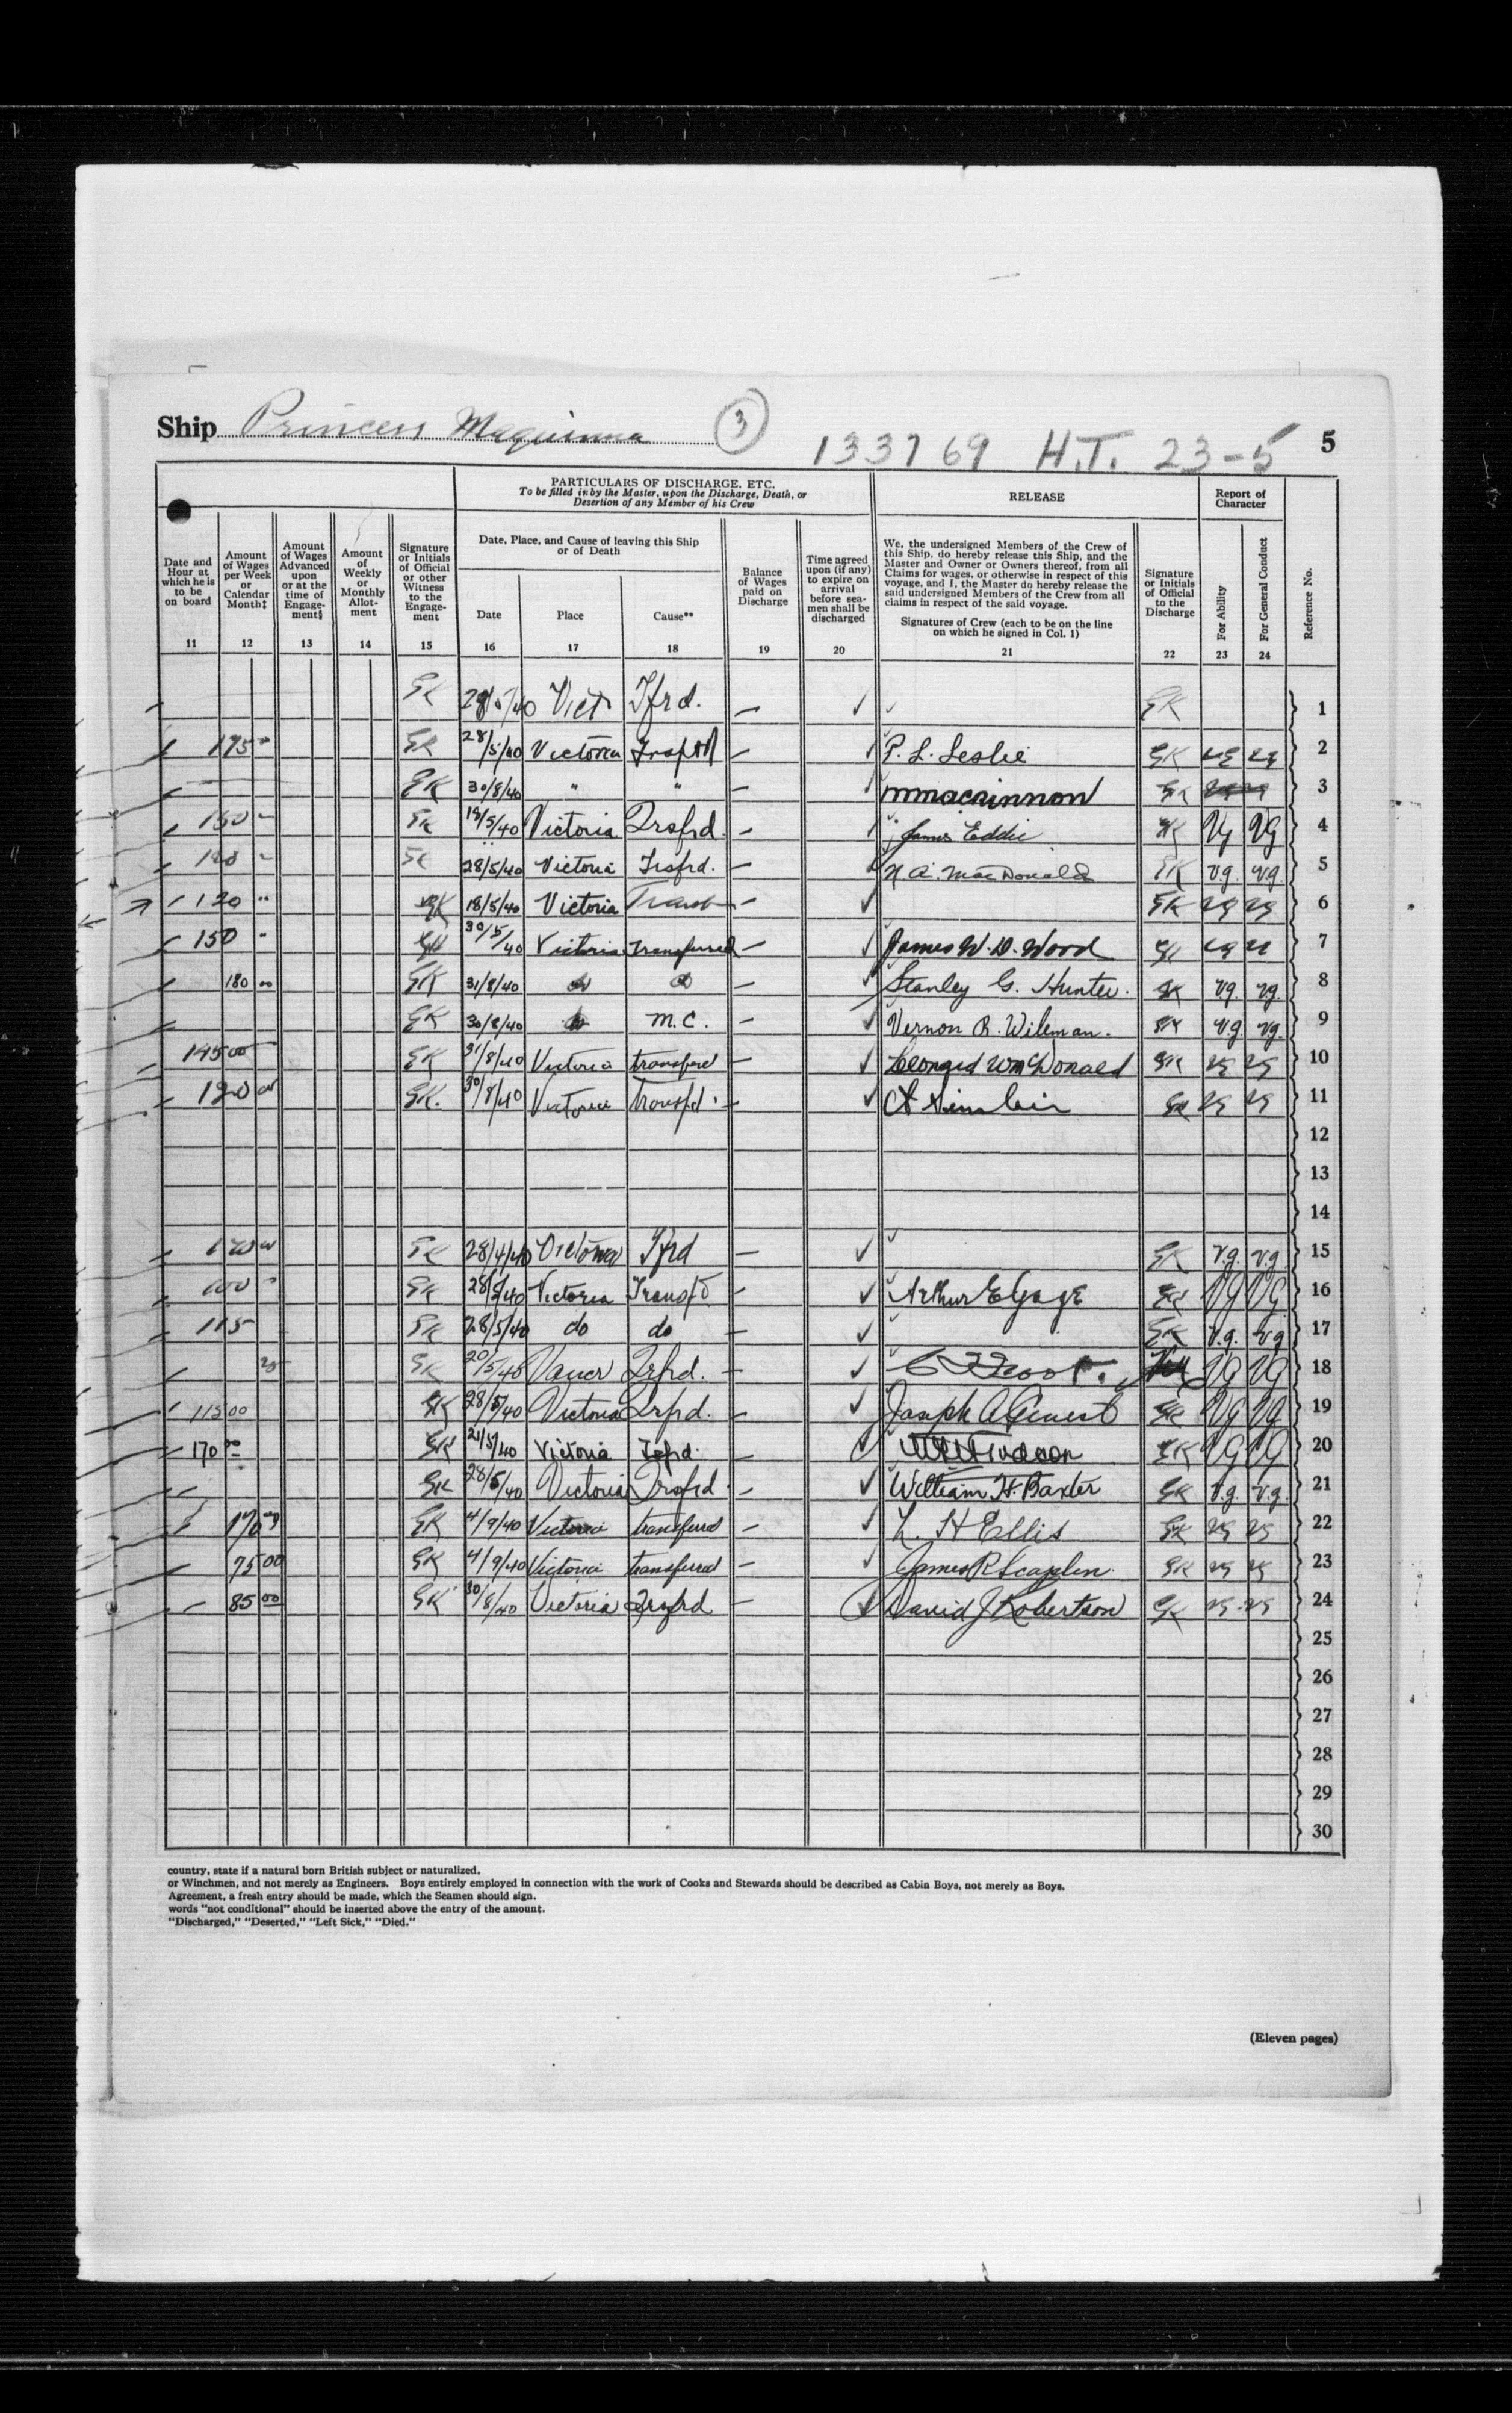 Ship Princess Maquinna 3
133769 H.T. 23-5 5
PARTICULARS OF DISCHARGE, ETC.
To be filled in by the Master, upon the Discharge, Death, or
Desertion of any Member of his Crew
RELEASE
Report of
Character
Date and
Hour at
which he is
to be
on board
Amount
of Wages
per Week
or
Calendar
Month‡
Amount
of Wages
Advanced
upon
or at the
time of
Engage-
ment§
Amount
of
Weekly
or
Monthly
Allot-
ment
Signature
or Initials
of Official
or other
Witness
to the
Engage-
ment
Date, Place, and Cause of leaving this Ship
or of Death
Date
Place
Cause**
Balance
of Wages
paid on
Discharge
Time agreed
upon (if any)
to expire on
arrival
before sea-
men shall be
discharged
We, the undersigned Members of the Crew of
this Ship, do hereby release this Ship, and the
Master and Owner or Owners thereof, from all
Claims for wages, or otherwise in respect of this
voyage, and I, the Master do hereby release the
said undersigned Members of the Crew from all
claims in respect of the said voyage.
Signatures of Crew (each to be on the line
on which he signed in Col. 1)
Signature
or Initials
of Official
to the
Discharge
For Ability
For General Conduct
Reference No.
11 12 13 14 15 16 17 18 19 20 21 22 23 24
GK 28/5/40 Vict Tfrd. — ✓ ✓ GK 1
175 GK 28/5/40 Victoria — ✓ P. L. Leslie GK vg vg 2
GK 30/8/40 " " — ✓ GK 3
150 GK 19/5/40 Victoria Trsfrd. — ✓ James Eddie GK Vg Vg 4
GK 28/5/40 Victoria Trsfrd. — ✓ N A. MacDonald GK v.g. v.g. 5
120 " GK 18/5/40 Victoria — ✓ GK vg vg 6
150 " GK 30/5/40 Victoria Transferred — ✓ James W. D. Wood GK vg vg 7
180 00 GK 31/8/40 do do — ✓ Stanley G. Hunter. GK v.g. vg. 8
GK 30/8/40 do M.C. — ✓ Vernon R. Wileman. GK v.g vg. 9
145 00 GK 31/8/40 Victoria transferd — ✓ GK vg vg 10
120 00 GK. 30/8/40 Victoria Transfd. — ✓ GK vg vg 11
12
13
14
GK 28/4/40 Victoria Tfrd — ✓ ✓ GK v.g. v.g. 15
GK 28/5/40 Victoria Transfd ✓ Arthur E Gage GK VG VG 16
115 GK 28/5/40 do do — ✓ GK v.g. v.g 17
GK 20/5/40 Vancr Trfrd. — ✓ VG VG 18
115 00 GK 28/5/40 Victoria Trfrd. — ✓ Joseph A GK VG VG 19
170 00 GK 21/5/40 Victoria Tsfrd. — ✓ Hudson GK VG VG 20
GK 28/5/40 Victoria Trsfrd — ✓ William H. Baxter GK v.g. v.g. 21
170 00 GK 4/9/40 Victoria transferred — ✓ L. H Ellis GK vg vg 22
75 00 GK 4/9/40 Victoria transferred — ✓ James R Scaplen. GK vg vg 23
85 00 GK 30/8/40 Victoria Trsfrd — ✓ David J Robertson GK vg vg 24
25
26
27
28
29
30
country, state if a natural born British subject or naturalized.
or Winchmen, and not merely as Engineers. Boys entirely employed in connection with the work of Cooks and Stewards should be described as Cabin Boys, not merely as Boys.
Agreement, a fresh entry should be made, which the Seamen should sign.
words "not conditional" should be inserted above the entry of the amount.
"Discharged," "Deserted," "Left Sick," "Died."
(Eleven pages)